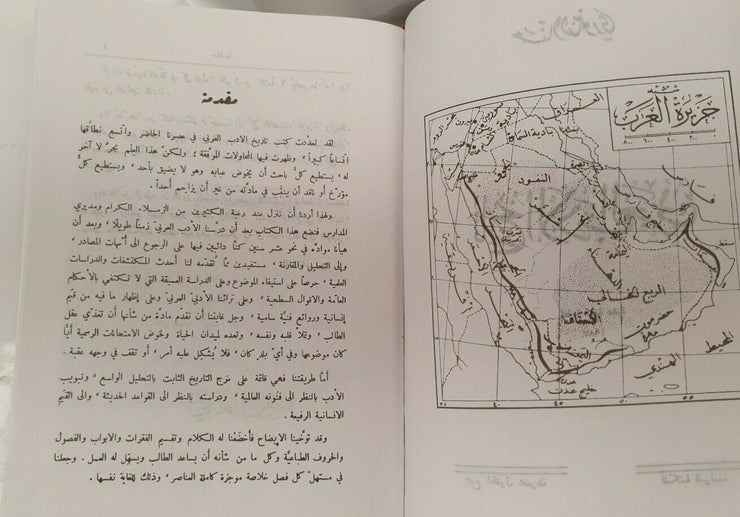 مقدمة
لقد تعدّدت كتب تاريخ الادب العربي في عصرنا الحاضر واتّسع نطاقها
اتّساعًا كبيرًا ، وظهرت فيها المحاولات الموفّقة ؛ ولكنّ هذا العِلم بحرٌ لا آخر
له ، يستطيع كلّ باحث أن يخوض عبابه وهو لا يضيق بأحد ، ويستطيع كلّ
مؤرّخ أو ناقد أن ينقّب في مادّته من غير أن يزاحم أحداً .
وهذا أردنا أن ننزل عند رغبة الكثيرين من الزملاء الكرام ومديري
المدارس فنضع هذا الكتاب بعد أن درّسنا الأدب العربيّ زمنًا طويلًا ، وبعد أن
هيأنا موادّه في نحو عشر سنين كنّا دائبين فيها على الرجوع الى أمّهات المصادر ،
والى التحليل والمقارنة ، مستفيدين ممّا تُقدّمه لنا أحدث المكتشفات والدراسات
العلمية ، حرصًا على استيفاء الموضوع وعلى الدراسة العميقة التي لا تكتفي بالأحكام
العامّة والاقوال السطحية ، وعلى تراثنا الأدبيّ العربيّ ، وعلى إظهار ما فيه من قيَم
إنسانية وروائع فنيّة سامية ، وجل غايتنا أن نقدّم مادّة من شأنها أن تغذّي عقل
الطالب ، وتملأ قلبه ونفسه ، وتعده لميدان الحياة ولخوض الامتحانات الرسمية أيًّا
كان موضوعها وفي أيّ بلد كان ، فلا يُشكل عليه أمر ، أو تقف في وجهه عقبة .
أمّا طريقتنا فهي قائمة على نهج التاريخ الثابت بالتحليل الواسع ، وتبويب
الأدب بالنظر الى فنونه العالمية ، ودراسته بالنظر الى القواعد الحديثة ، والى القيَم
الانسانية الرفيعة .
وقد توخّينا الإيضاح فأخضعْنا له الكلام وتقسيم الفقرات والابواب والفصول
والحروف الطباعيّة وكل ما من شأنه أن يساعد الطالب ويسهّل له العمل . وجعلنا
في مستهلّ كل فصل خلاصة موجزة كاملة العناصر ، وذلك للغاية نفسها .
شبه
جزيرة العرب
٨٠٠ ٦٠٠ ٤٠٠ ٢٠٠
العراق
بادية السماوة
بيروت
النفود
فارس
الربع الخالي
الاحقاف
حضرموت
اليمن
عدن
خليج عدن
المحيط
الهندي
مسقط
٤٠ ٤٥ ٥٠ ٥٥